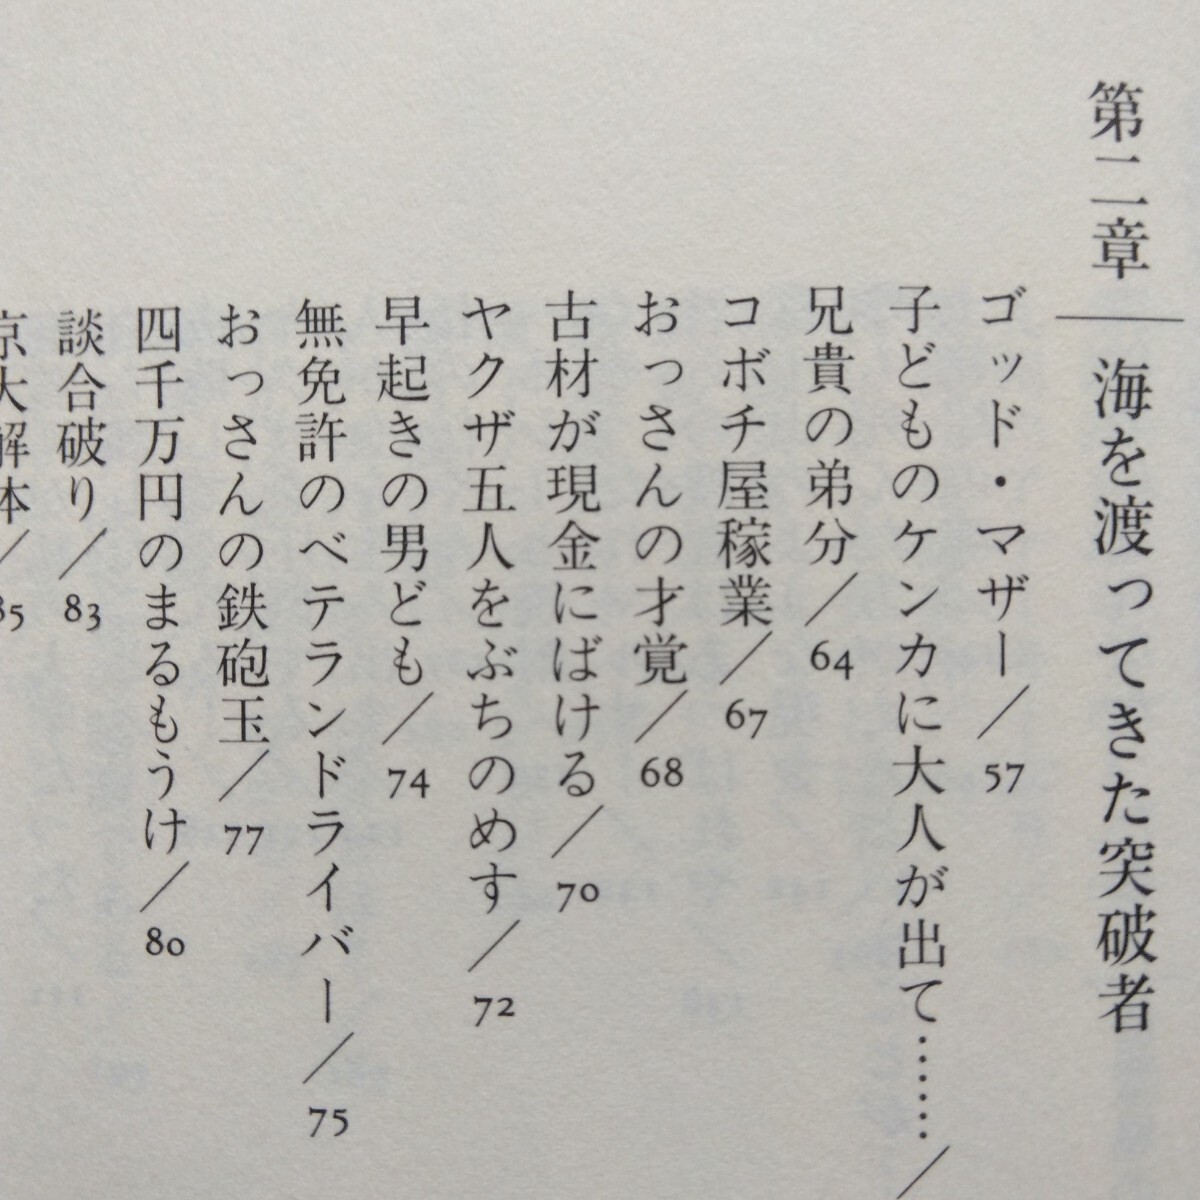 第二章 海を渡ってきた突破者
ゴッド・マザー／57
子どものケンカに大人が出て……／
兄貴の弟分／64
コボチ屋稼業／67
おっさんの才覚／68
古材が現金にばける／70
ヤクザ五人をぶちのめす／72
早起きの男ども／74
無免許のベテランドライバー／75
おっさんの鉄砲玉／77
四千万円のまるもうけ／80
談合破り／83
京大解体／85